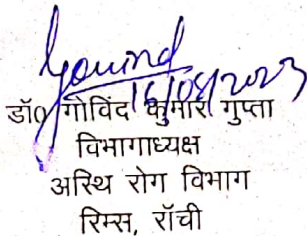 Govind
16/08/2023
डॉ0 गोविंद कुमार गुप्ता
विभागाध्यक्ष
अस्थि रोग विभाग
रिम्स, राँची